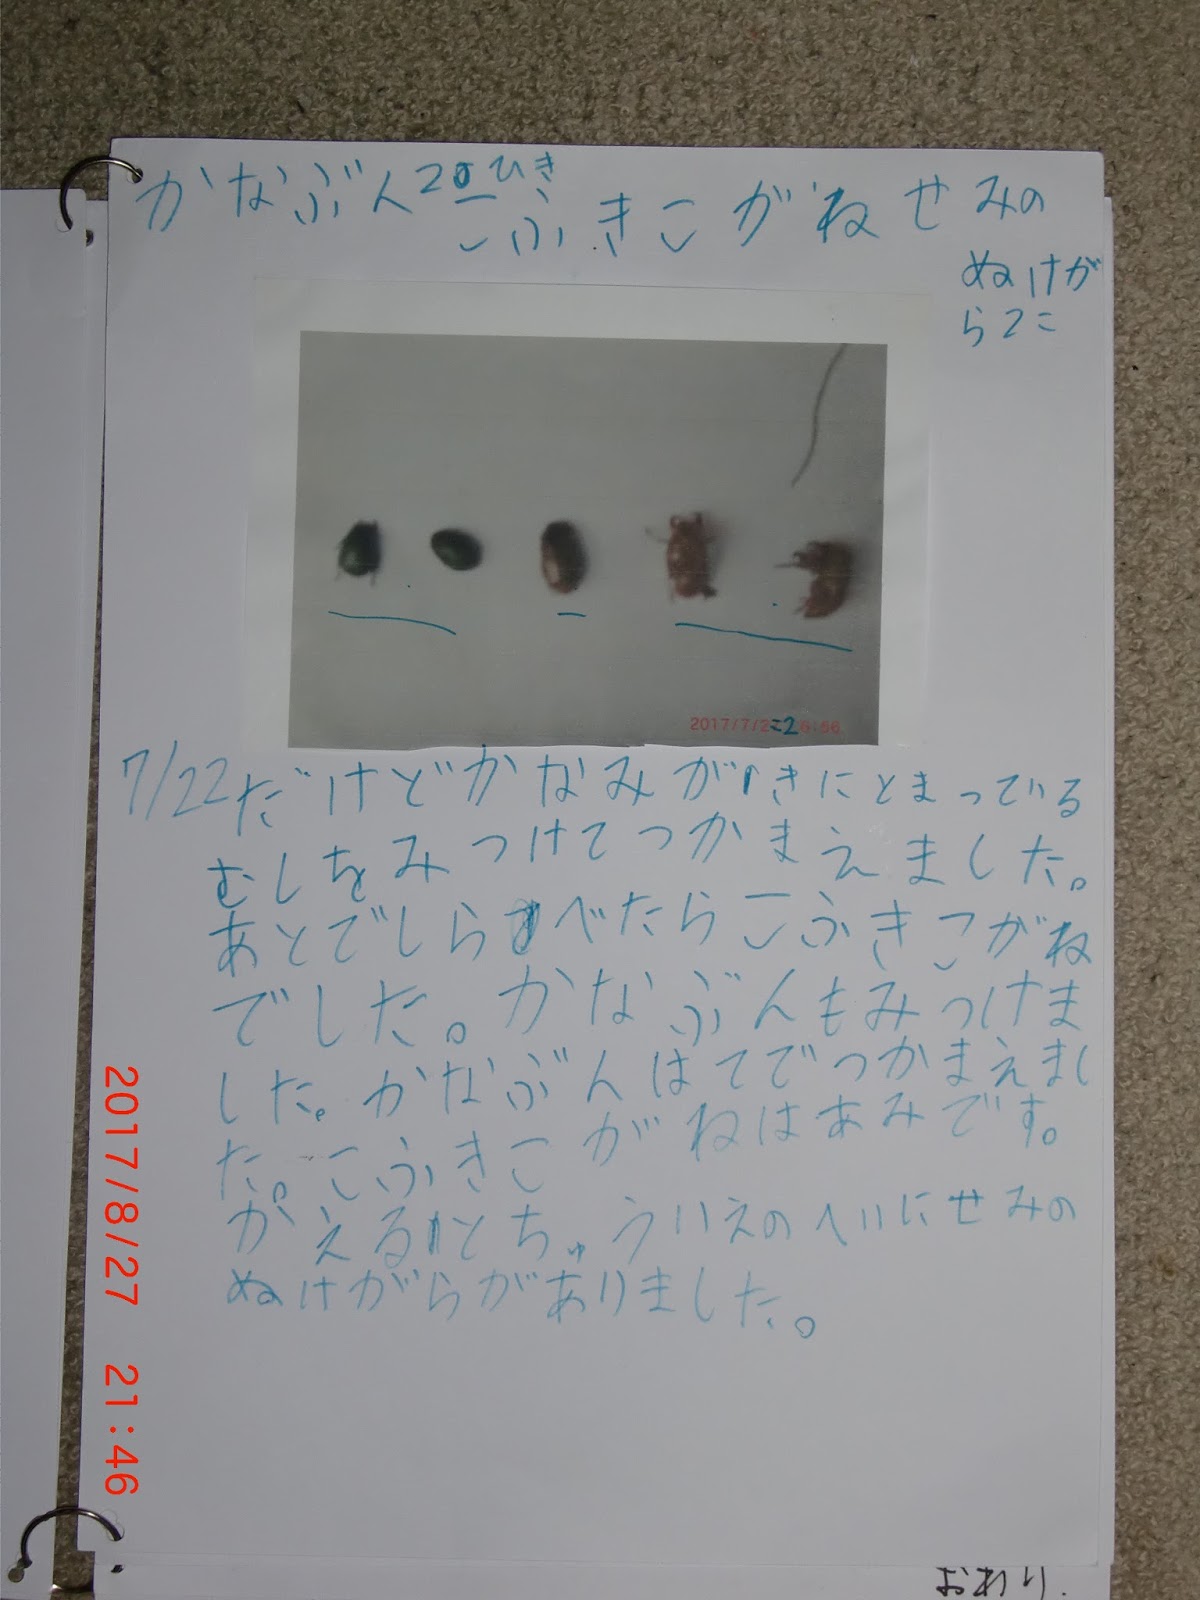 かなぶん2ひき
こふきこがねせみの
ぬけが
ら2こ
2017/7/22 6:56
7/22だけどかなみがきにとまっている
むしをみつけてつかまえました。
あとでしらべたらこふきこがね
でした。かなぶんもみつけま
した。かなぶんはてでつかまえまし
た。こふきこがねはあみです。
かえるとちゅういえのへいにせみの
ぬけがらがありました。
2017/8/27 21:46
おわり.